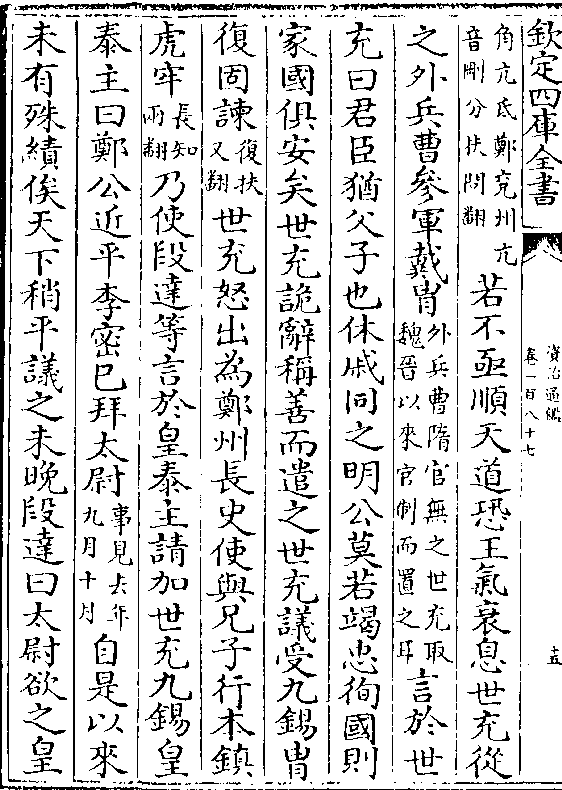 欽定四庫全書
資治通鑑
卷一百八十七
十五
角亢氐鄭兖州亢
音剛分扶問翻
若不亟順天道恐王氣衰息世充從
之外兵曹參軍戴胄
外兵曹隋官無之世充取
魏晉以來官制而置之耳
言於世
充曰君臣猶父子也休戚同之明公莫若竭忠徇國則
家國俱安矣世充詭辭稱善而遣之世充議受九錫胄
復固諫
復扶
又翻
世充怒出為鄭州長史使與兄子行本鎮
虎牢
長知
兩翻
乃使段達等言於皇泰主請加世充九錫皇
泰主曰鄭公近平李密已拜太尉
事見去年
九月十月
自是以來
未有殊績俟天下稍平議之未晚段達曰太尉欲之皇